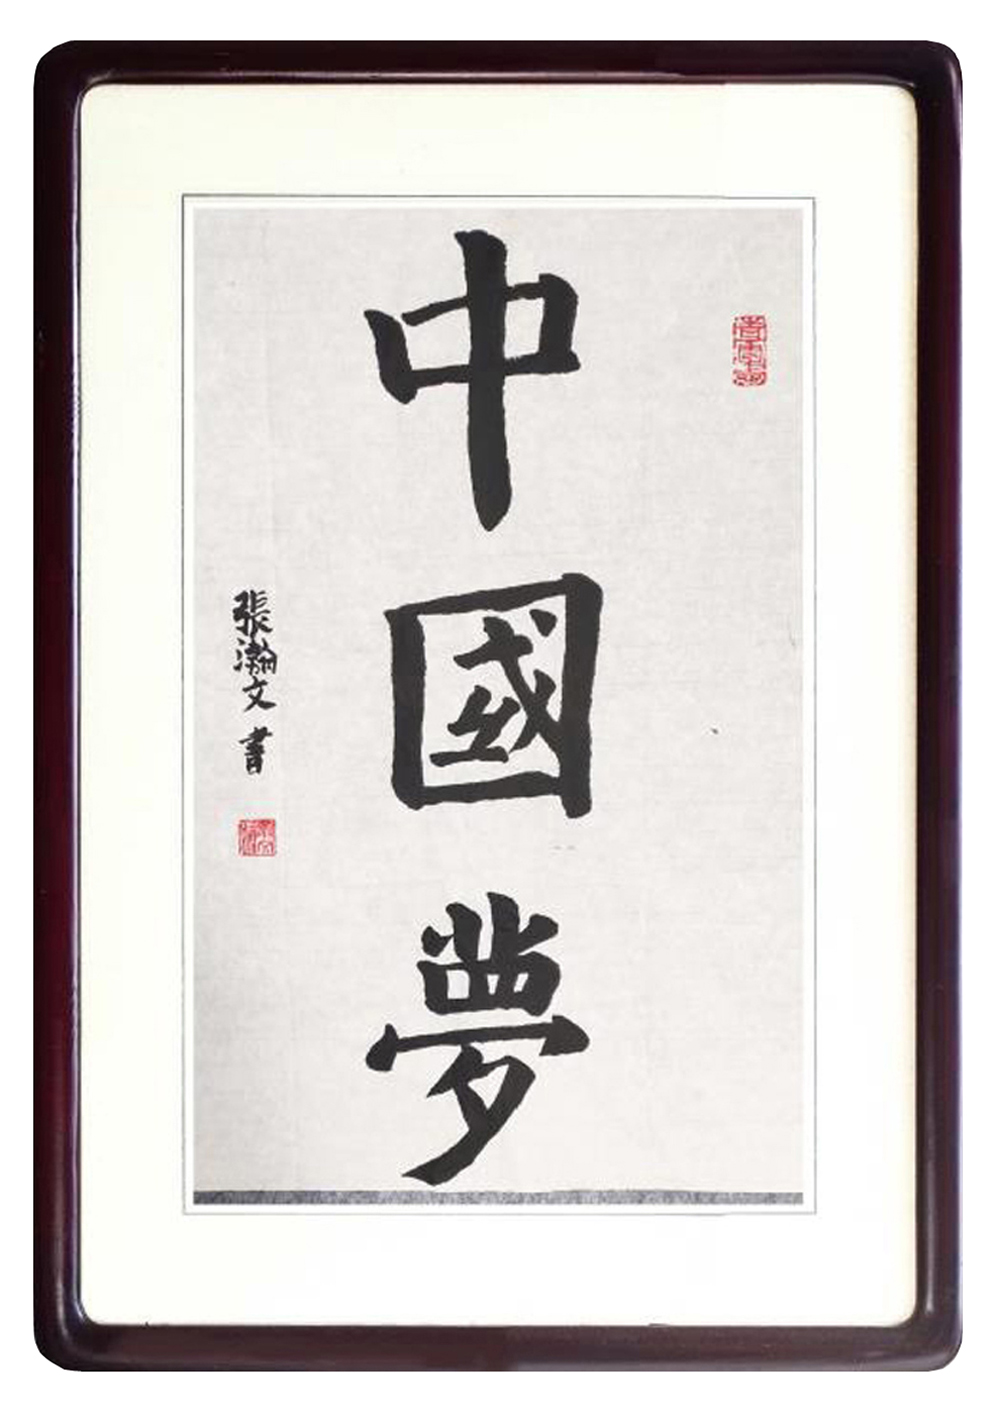 中國夢
張瀚文書